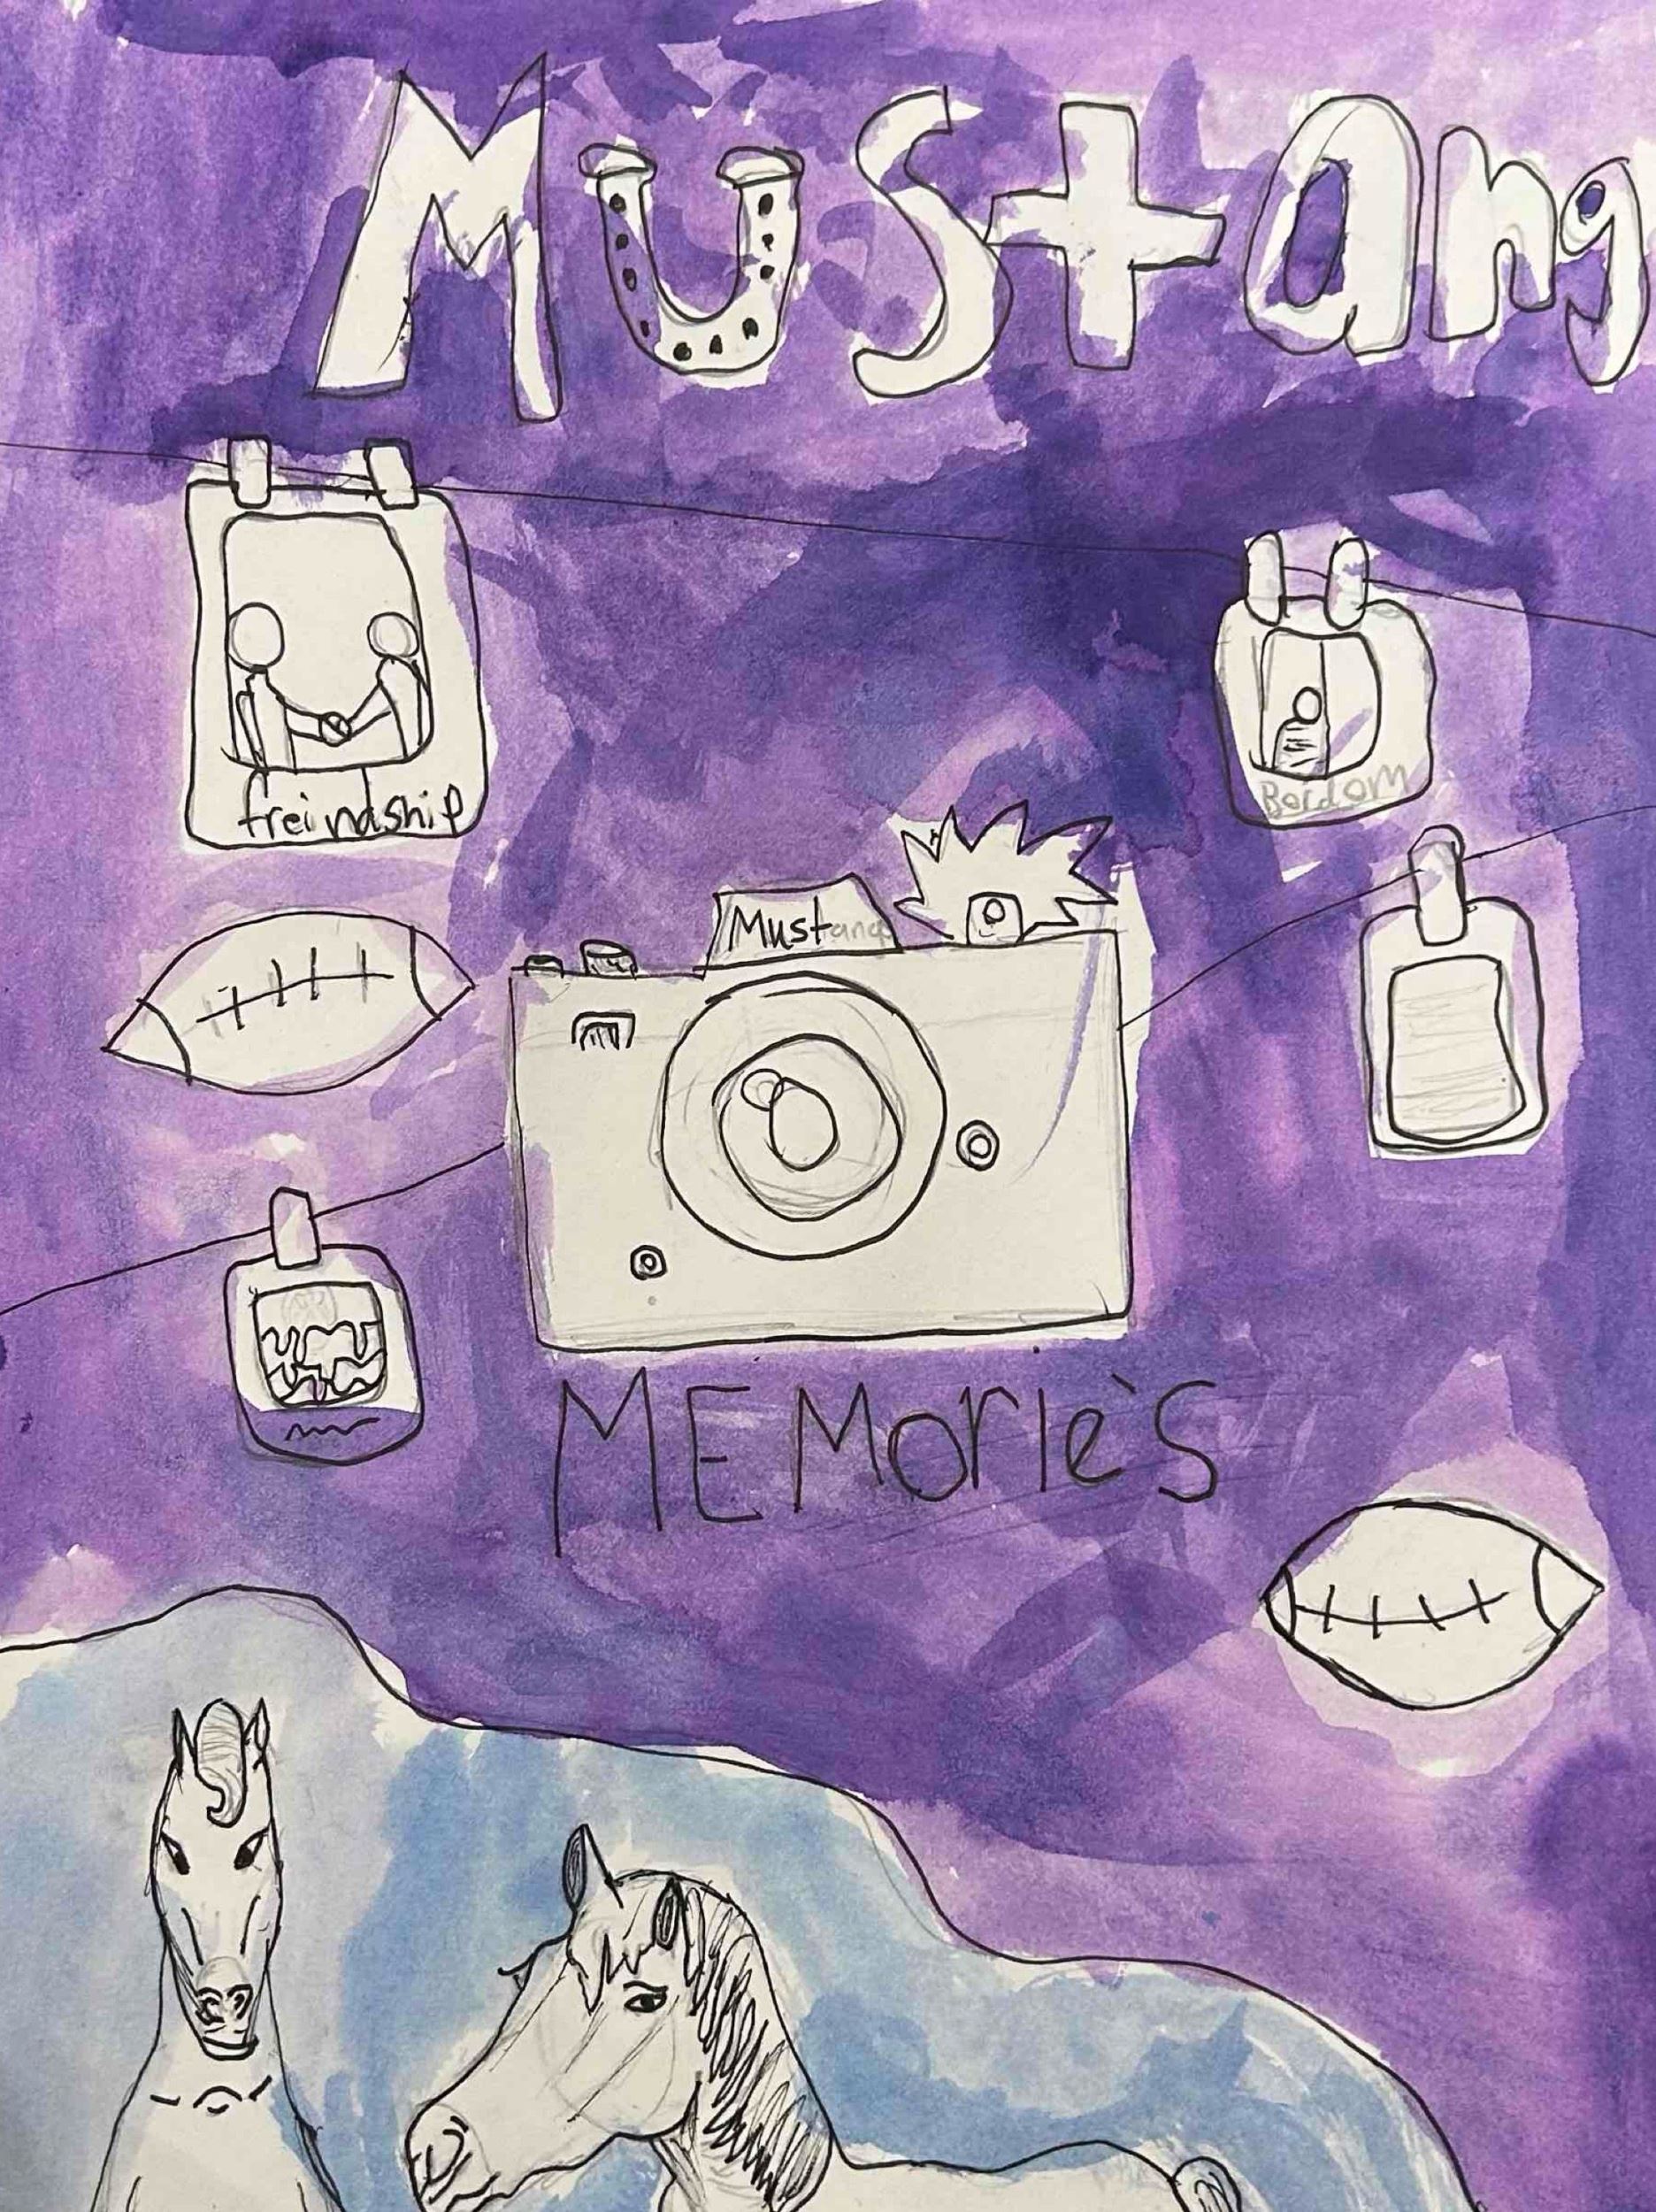 Mustang
freindship
Bordom
Mustang
MEMorie's